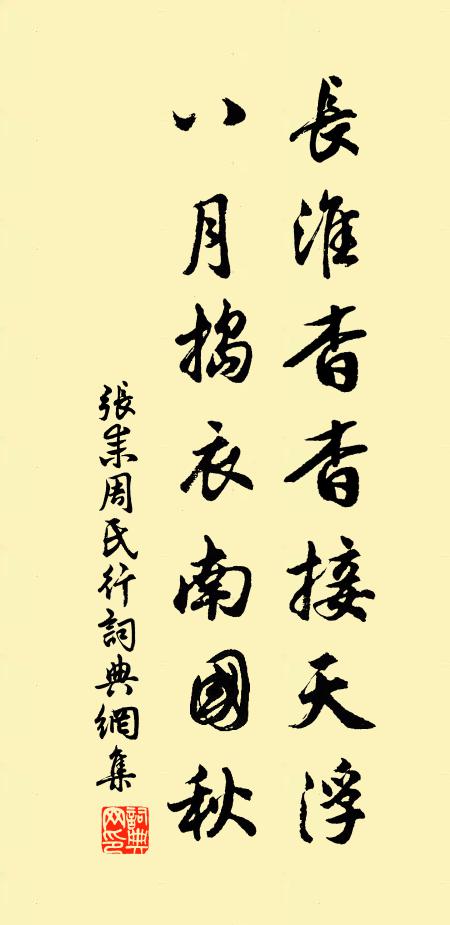 長淮杳杳接天浮
八月搗衣南國秋
張耒周氏行詞典網集
詞典網印